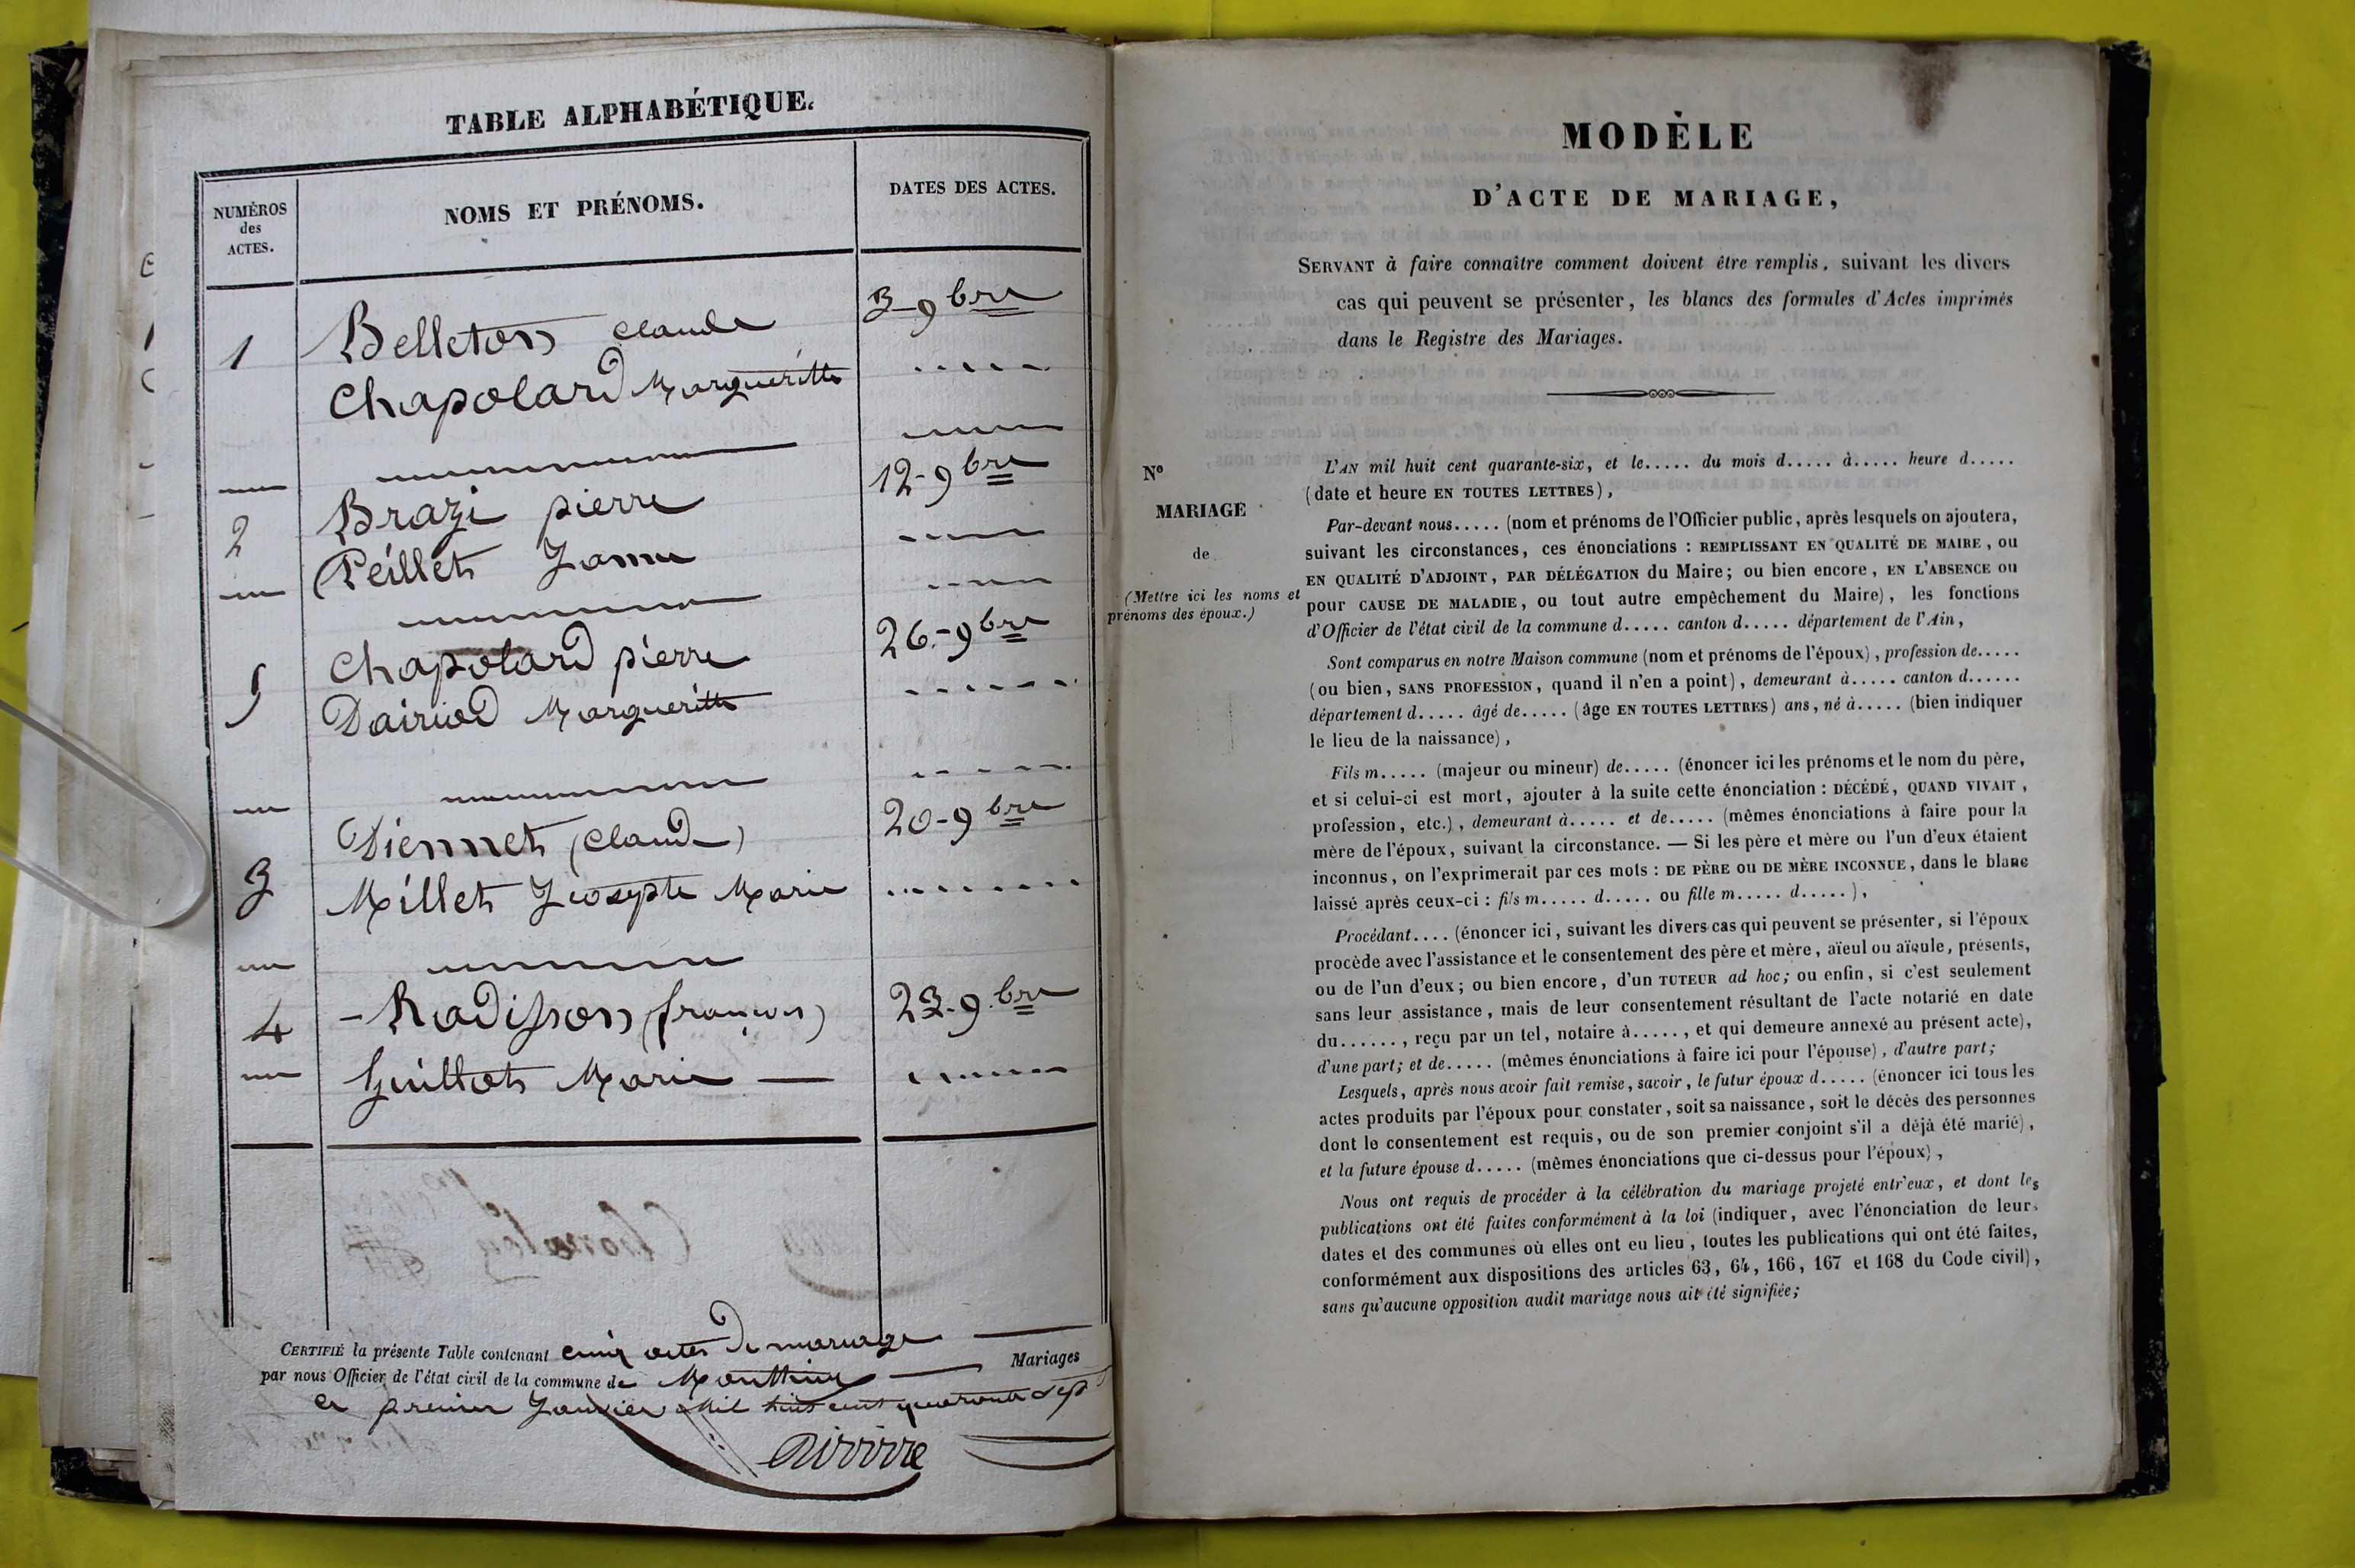 TABLE ALPHABÉTIQUE.
NUMÉROS
des
ACTES.
NOMS ET PRÉNOMS.
DATES DES ACTES.
1 Belleton claude 3-9bre
Chapolard Margueritte
2 Brazi pierre 12-9bre
Peillet
5 Chapolard pierre 26-9bre
Margueritte
3 Diennet (claude) 20-9bre
Millet Marie
4 - Radisson (françois) 23-9.bre
Guillot Marie —
CERTIFIÉ la présente Table contenant cinq actes de mariage
Mariages
par nous Officier de l'état civil de la commune de
ce premier Janvier mil huit cent quarante sept
MODÈLE
D'ACTE DE MARIAGE,
SERVANT à faire connaître comment doivent être remplis, suivant les divers
cas qui peuvent se présenter, les blancs des formules d'Actes imprimés
dans le Registre des Mariages.
N°
MARIAGE
de
(Mettre ici les noms et
prénoms des époux.)
L'AN mil huit cent quarante-six, et le..... du mois d..... à..... heure d.....
(date et heure EN TOUTES LETTRES),
Par-devant nous..... (nom et prénoms de l'Officier public, après lesquels on ajoutera,
suivant les circonstances, ces énonciations : REMPLISSANT EN QUALITÉ DE MAIRE, ou
EN QUALITÉ D'ADJOINT, PAR DÉLÉGATION du Maire; ou bien encore, EN L'ABSENCE ou
pour CAUSE DE MALADIE, ou tout autre empêchement du Maire), les fonctions
d'Officier de l'état civil de la commune d..... canton d..... département de l'Ain,
Sont comparus en notre Maison commune (nom et prénoms de l'époux), profession de.....
(ou bien, SANS PROFESSION, quand il n'en a point), demeurant à..... canton d......
département d..... âgé de..... (âge EN TOUTES LETTRES) ans, né à..... (bien indiquer
le lieu de la naissance),
Fils m..... (majeur ou mineur) de..... (énoncer ici les prénoms et le nom du père,
et si celui-ci est mort, ajouter à la suite cette énonciation : DÉCÉDÉ, QUAND VIVAIT,
profession, etc.), demeurant à..... et de..... (mêmes énonciations à faire pour la
mère de l'époux, suivant la circonstance. — Si les père et mère ou l'un d'eux étaient
inconnus, on l'exprimerait par ces mots : DE PÈRE ou DE MÈRE INCONNUE, dans le blanc
laissé après ceux-ci : fils m..... d..... ou fille m..... d.....),
Procédant.... (énoncer ici, suivant les divers cas qui peuvent se présenter, si l'époux
procède avec l'assistance et le consentement des père et mère, aïeul ou aïeule, présents,
ou de l'un d'eux; ou bien encore, d'un TUTEUR ad hoc; ou enfin, si c'est seulement
sans leur assistance, mais de leur consentement résultant de l'acte notarié en date
du......, reçu par un tel, notaire à....., et qui demeure annexé au présent acte),
d'une part; et de..... (mêmes énonciations à faire ici pour l'épouse), d'autre part;
Lesquels, après nous avoir fait remise, savoir, le futur époux d..... (énoncer ici tous les
actes produits par l'époux pour constater, soit sa naissance, soit le décès des personnes
dont le consentement est requis, ou de son premier conjoint s'il a déjà été marié),
et la future épouse d..... (mêmes énonciations que ci-dessus pour l'époux),
Nous ont requis de procéder à la célébration du mariage projeté entr'eux, et dont les
publications ont été faites conformément à la loi (indiquer, avec l'énonciation de leurs
dates et des communes où elles ont eu lieu, toutes les publications qui ont été faites,
conformément aux dispositions des articles 63, 64, 166, 167 et 168 du Code civil),
sans qu'aucune opposition audit mariage nous ait été signifiée;